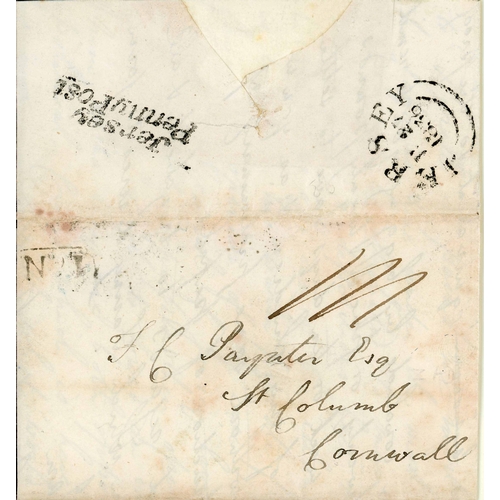 Jersey
Penny Post
JERSEY
No 1
F C Paynter Esq
St Columb
Cornwall